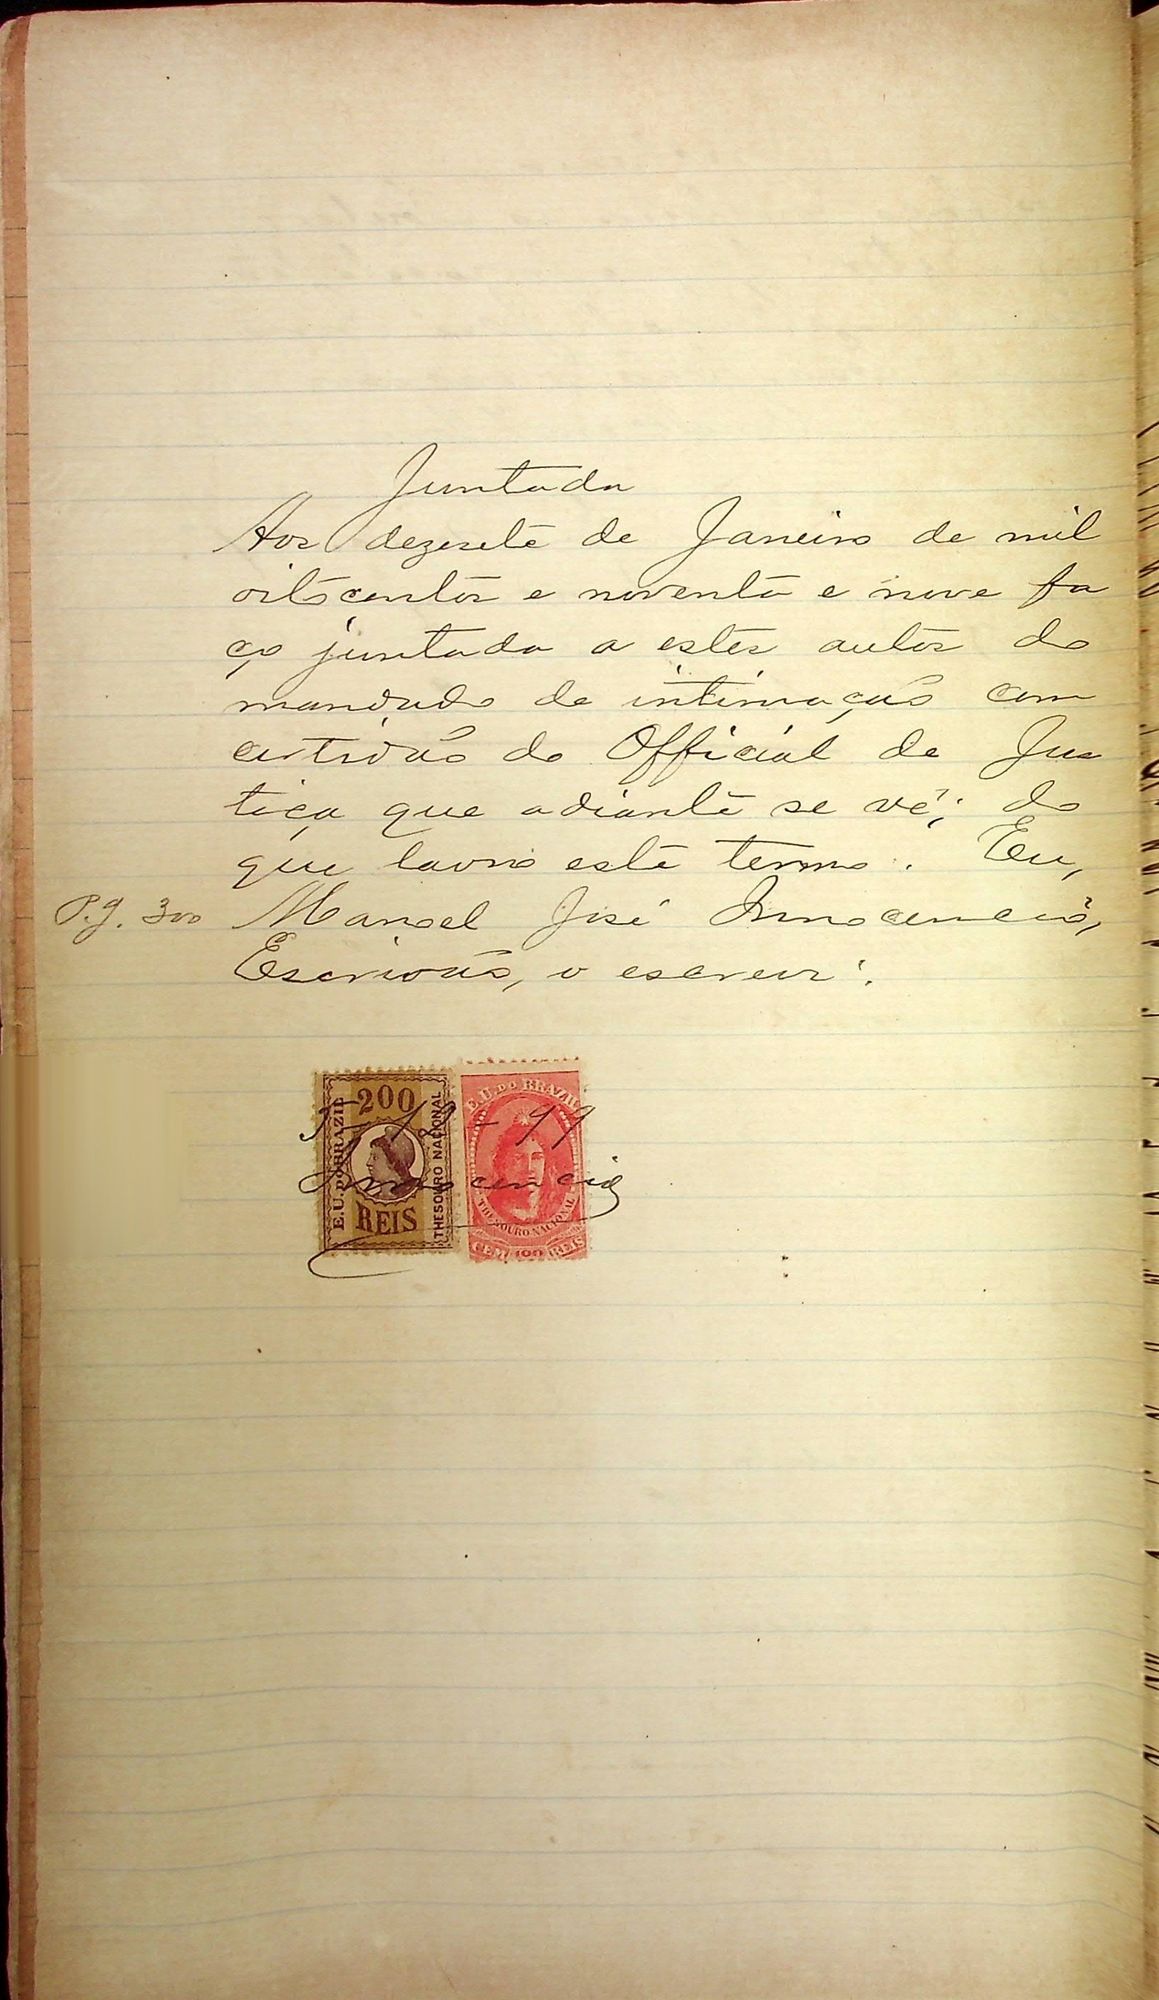 Juntada
Aos dezesete de Janeiro de mil
oitocentos e noventa e nove fa
ço juntada a estes autos do
mandado de intimação com
certidão do Official de Jus
tiça que adiante se vê; do
que lavro este termo. Eu,
Pg. 300 Manoel José Innocencio,
Escrivão, o escrevi.
200
E.U. DO BRAZIL
THESOURO NACIONAL
REIS
E.U. DO BRAZIL
THESOURO NACIONAL
CEM 100 REIS
99
Innocencio